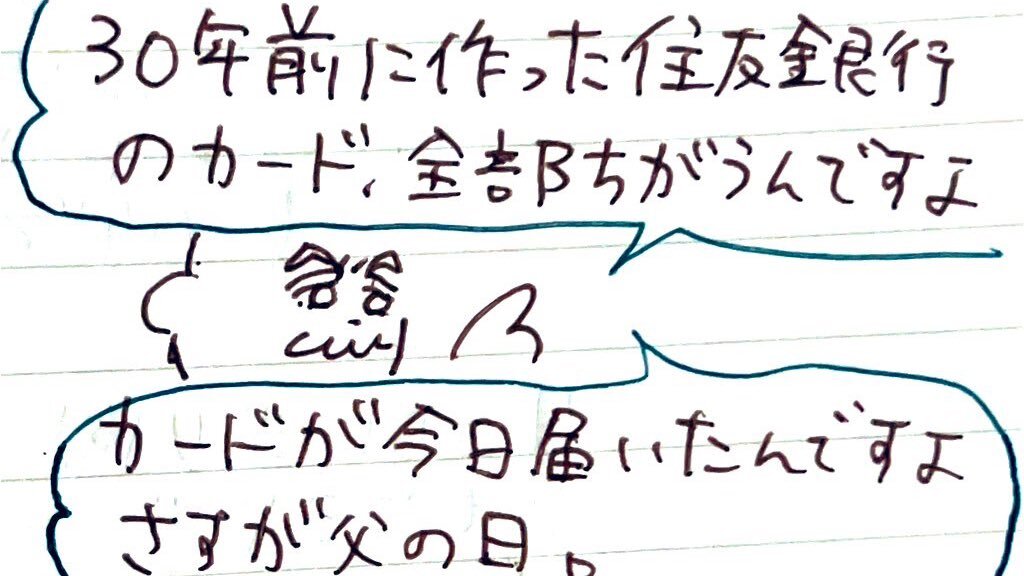 30年前に作った住友銀行
のカード、全部ちがうんですよ
カードが今日届いたんですよ
さすが父の日。